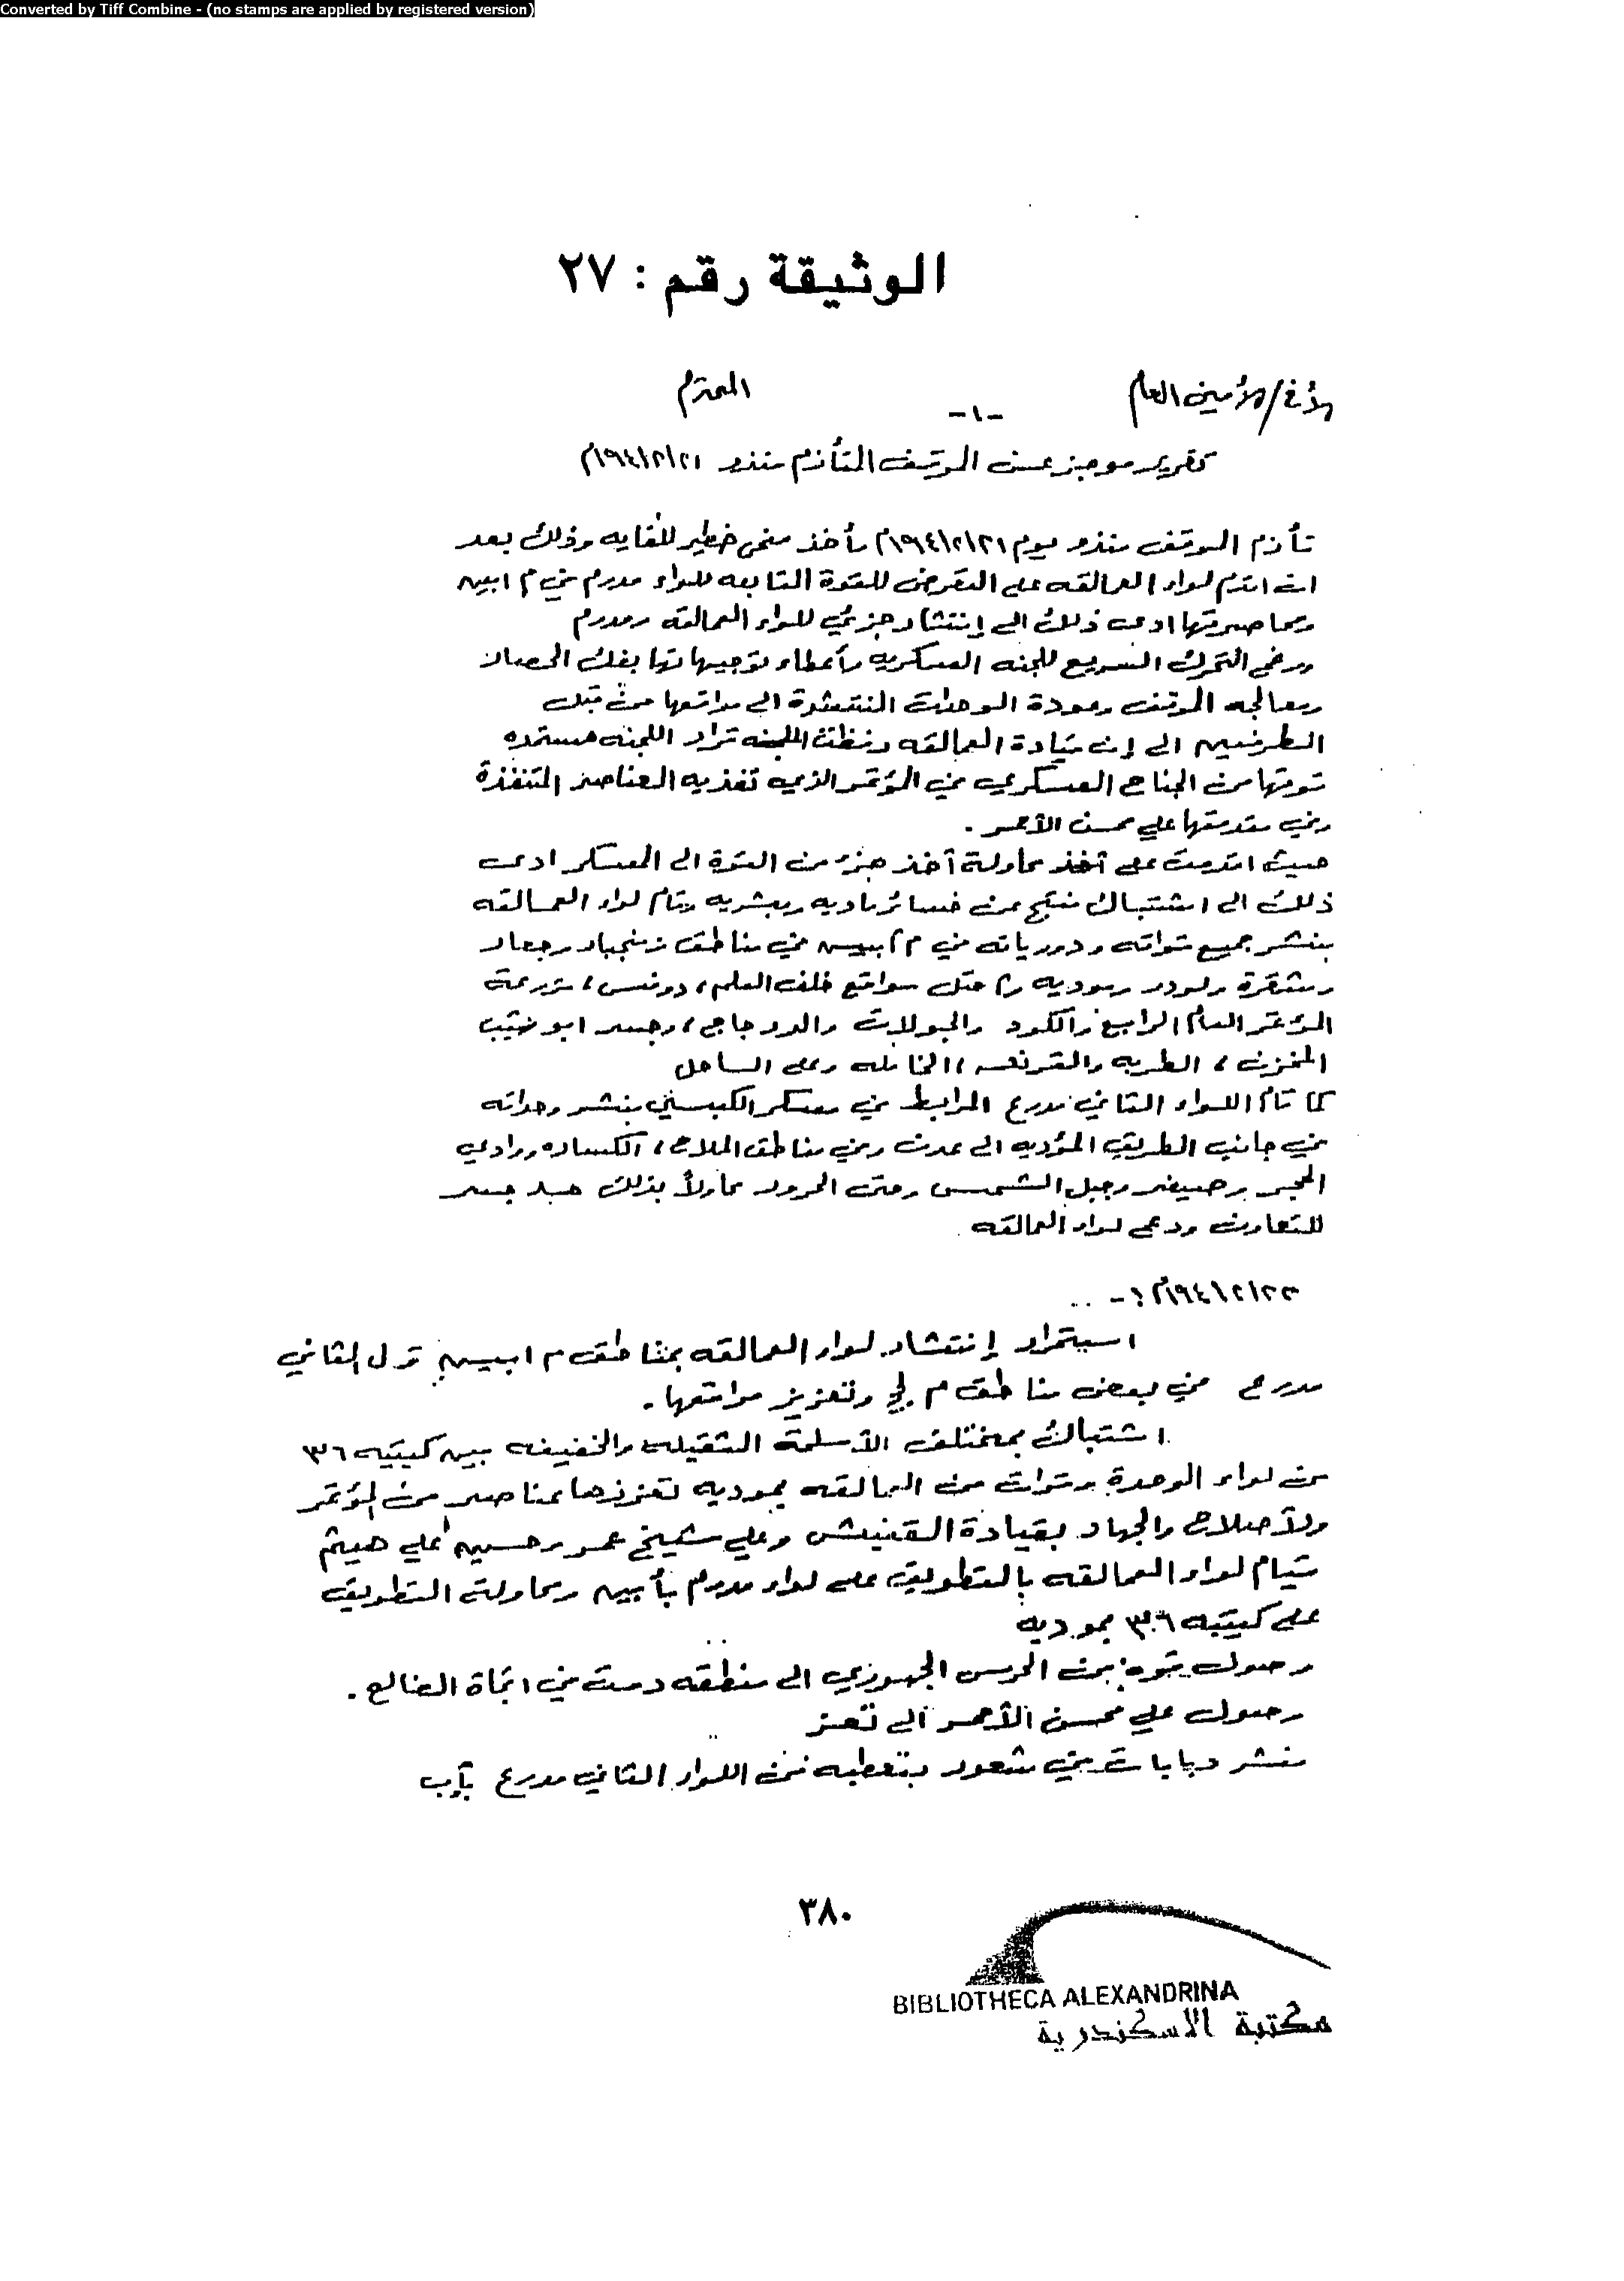 Converted by Tiff Combine - (no stamps are applied by registered version)
الوثيقة رقم : ٢٧
الأخ/الأمين العام المحترم
-١-
تقرير موجز عن الموقف المتأزم منذ ٩٤/٢/٢١م
تأزم الموقف منذ يوم ٩٤/٢/٢١م يأخذ منحى خطير للغايه وذلك بعد
ان اقدم لواء العمالقه على التعرض للقوة التابعه للواء مدرم في م ابين
ومحاصرتها ادى ذلك الى إنتشار جزئي للواء العمالقه ومدرم
ورغم التحرك السريع للجنه العسكريه بأعطاء توجيهاتها بفك الحصار
ومعالجه الموقف وعودة الوحدات المنتشرة الى مواقعها من قبل
الطرفين الى إن قيادة العمالقه رفظت قرار اللجنه مستمده
قوتها من الجناح العسكري في المؤتمر الذي تغذيه العناصر المتنفذة
وفي مقدمتها علي محسن الأحمر .
حيث اقدمت على محاولة أخذ جزء من القوة الى المعسكر ادى
ذلك الى اشتباك نتج عن خسائر ماديه وبشريه وقام لواء العمالقه
بنشر جميع قواته ودورياته في م ابين في مناطق زنجبار وجعار
وشقرة ولودر وموديه واحتل مواقع خلف العلم، دوفس، مزرعة
المؤتمر العام الرابع والكود والدرجاج، وجسر
المخزن، الطريه والقرنعه، وعلى الساحل
كما قام اللواء الثاني مدرع المرابط في معسكر الكبسي بنشر وحداته
في جانب الطريق المؤديه الى عدن وفي مناطق الملاح، الكساره ووادي
الحجر وجبل الشمس وحتى الحرور محاولاً بذلك جسر
للتعاون ودعم لواء العمالقه
٩٤/٢/٢٣م :-
استمرار إنتشار لواء العمالقه بمناطق م ابين و ل الثاني
مدرع في بعض مناطق م لحج وتعزيز مواقعها .
اشتباك بمختلف الأسلحة الثقيله والخفيفه بين كتيبه ٣٦
من لواء الوحدة وقوات من العمالقه بموديه تعززها عناصر من المؤتمر
والأصلاح والجهاد بقيادة وعلي شيخ عمر وحسين علي هيثم
قيام لواء العمالقه بالتطويق على لواء مدرم بأبين ومحاولة التطويق
على كتيبه ٣٦ بموديه
وصول قوه من الحرس الجمهوري الى منطقه دمت في اتجاة الضالع .
وصول علي محسن الأحمر الى تعز
نشر دبابات في من اللواء الثاني مدرع بآب
٣٨٠
BIBLIOTHECA ALEXANDRINA
مكتبة الاسكندرية